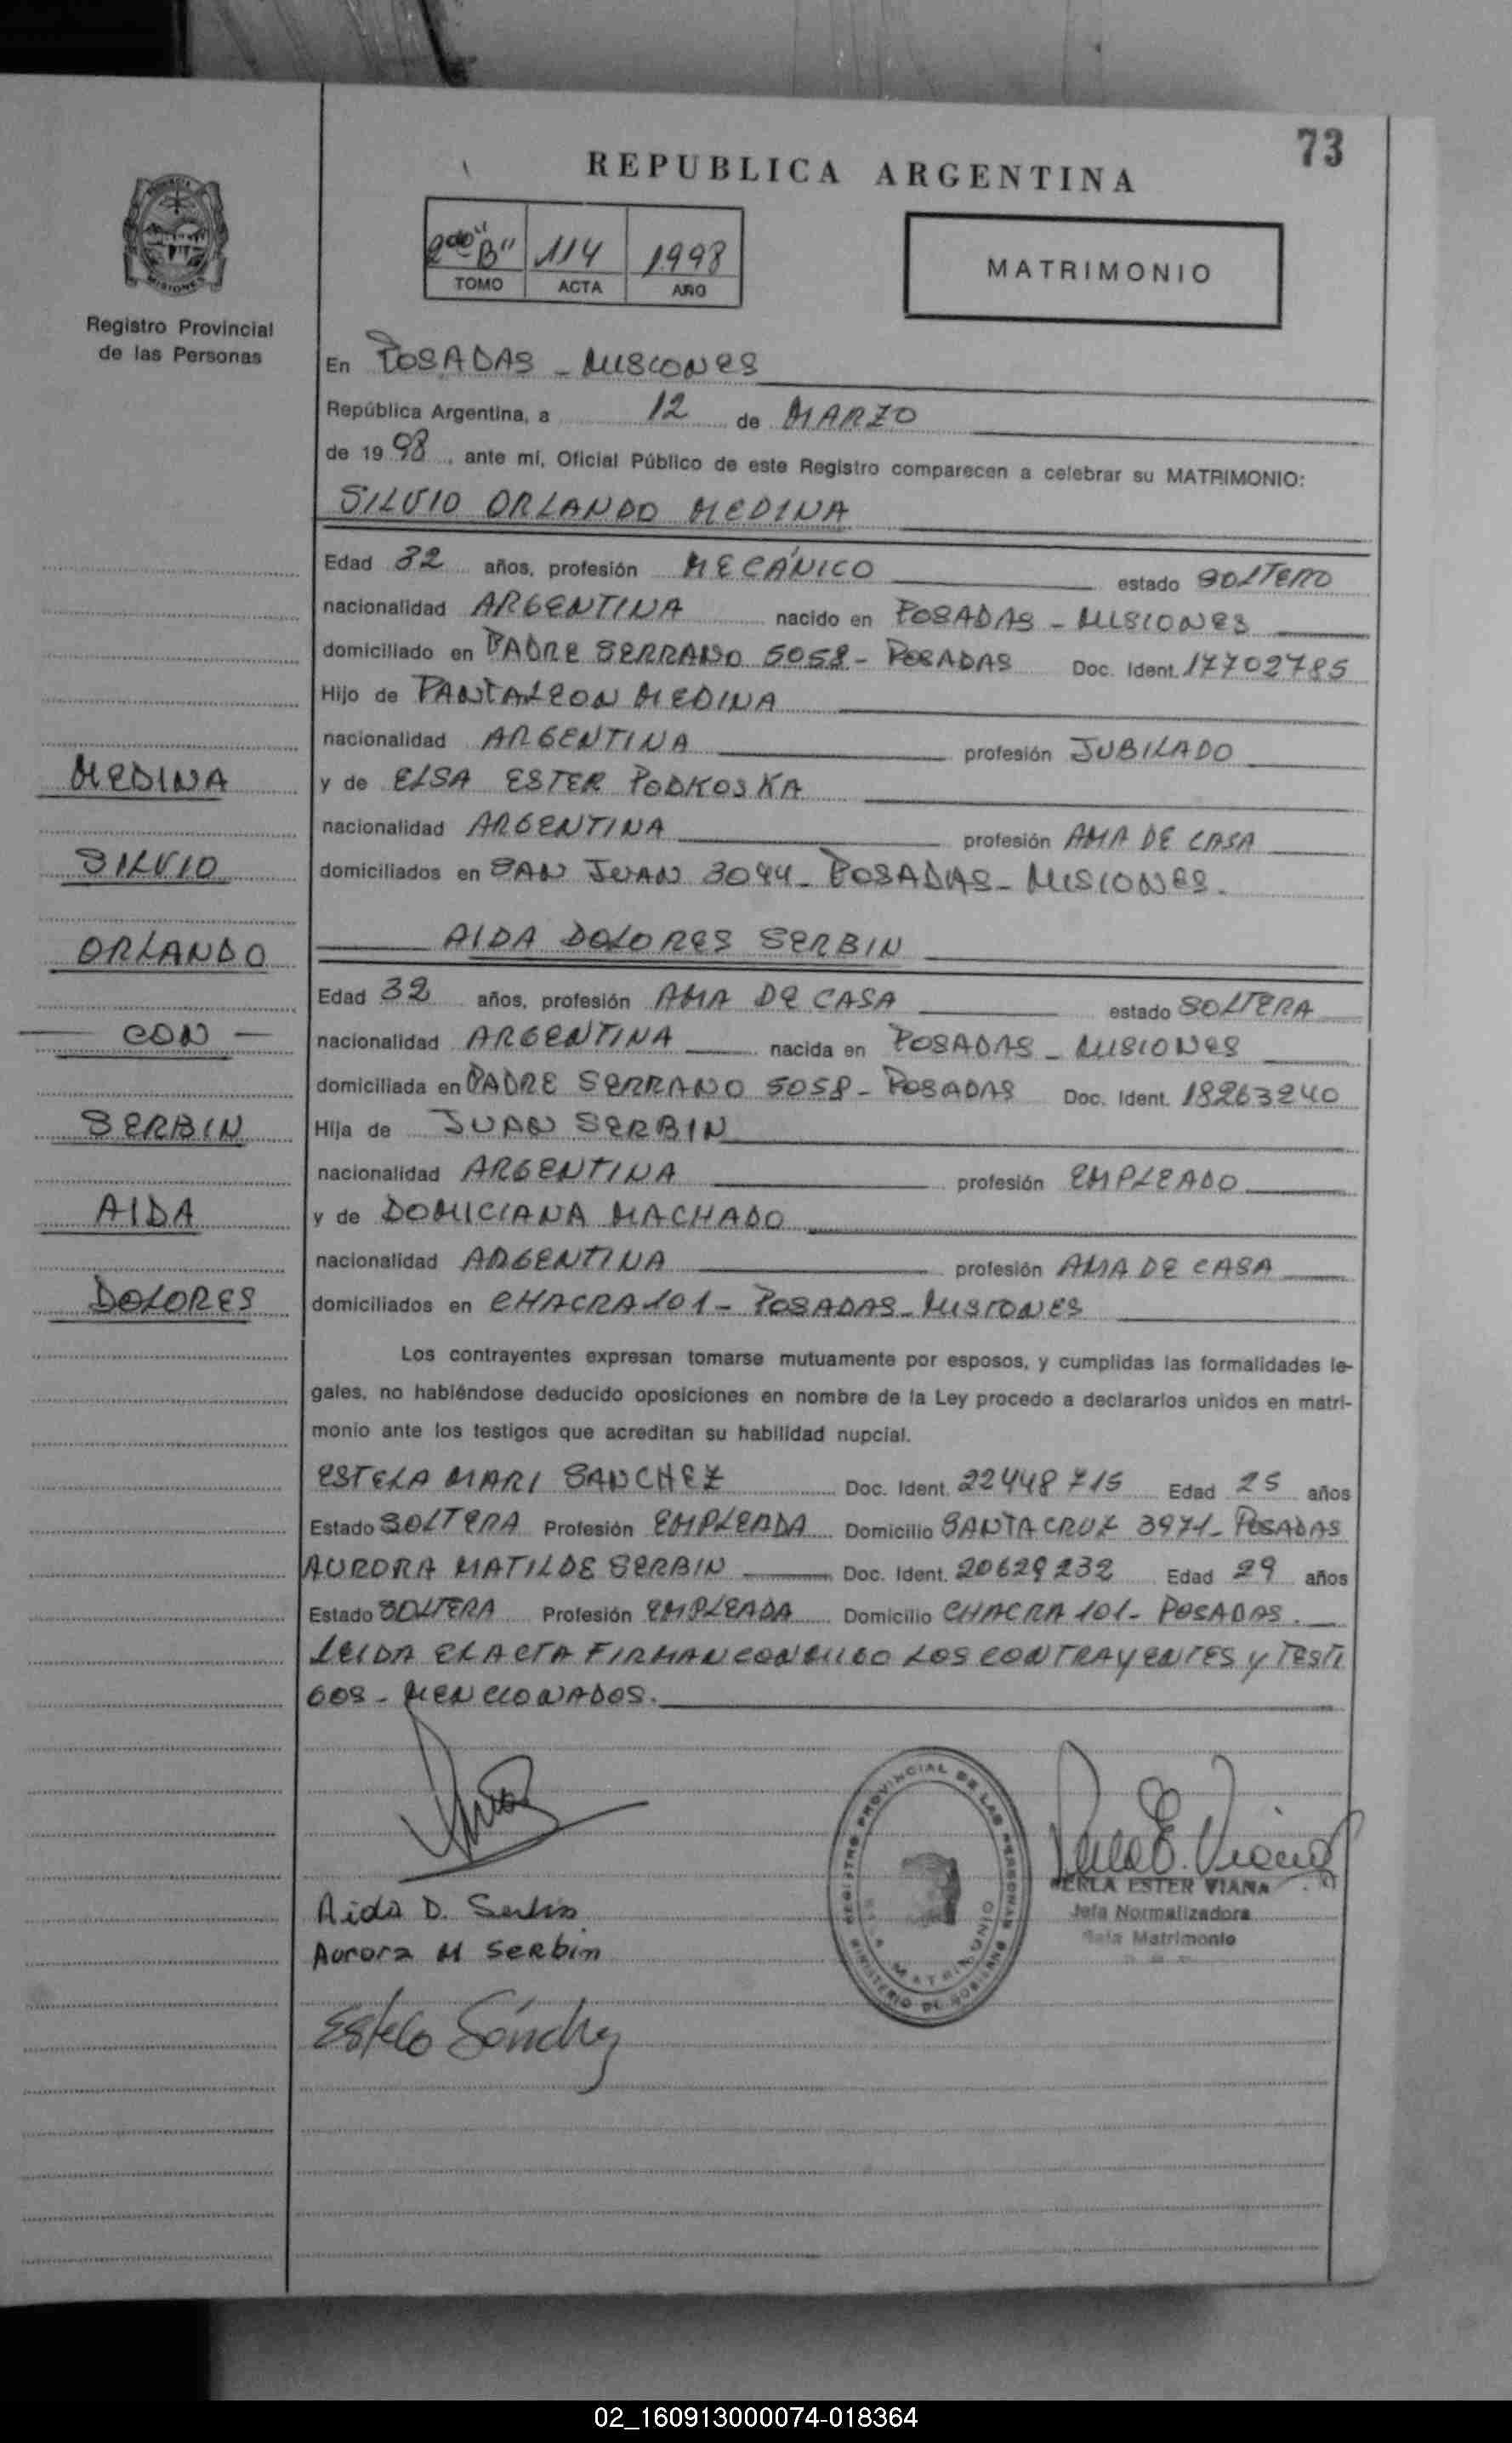 73
REPUBLICA ARGENTINA
2do "B" 114 1998
TOMO ACTA AÑO
MATRIMONIO
PROVINCIA
MISIONES
Registro Provincial
de las Personas
En POSADAS - MISIONES
República Argentina, a 12 de MARZO
de 1998, ante mí, Oficial Público de este Registro comparecen a celebrar su MATRIMONIO:
SILVIO ORLANDO MEDINA
Edad 32 años, profesión MECÁNICO estado SOLTERO
nacionalidad ARGENTINA nacido en POSADAS - MISIONES
domiciliado en PADRE SERRANO 5058 - POSADAS Doc. Ident. 17702785
Hijo de PANTALEON MEDINA
nacionalidad ARGENTINA profesión JUBILADO
y de ELSA ESTER PODKOSKA
nacionalidad ARGENTINA profesión AMA DE CASA
domiciliados en SAN JUAN 3044 - POSADAS - MISIONES.
AIDA DOLORES SERBIN
Edad 32 años, profesión AMA DE CASA estado SOLTERA
nacionalidad ARGENTINA nacida en POSADAS - MISIONES
domiciliada en PADRE SERRANO 5058 - POSADAS Doc. Ident. 18263240
Hija de JUAN SERBIN
nacionalidad ARGENTINA profesión EMPLEADO
y de DOMICIANA MACHADO
nacionalidad ARGENTINA profesión AMA DE CASA
domiciliados en CHACRA 101 - POSADAS - MISIONES
MEDINA
SILVIO
ORLANDO
- CON -
SERBIN
AIDA
DOLORES
Los contrayentes expresan tomarse mutuamente por esposos, y cumplidas las formalidades le-
gales, no habiéndose deducido oposiciones en nombre de la Ley procedo a declararlos unidos en matri-
monio ante los testigos que acreditan su habilidad nupcial.
ESTELA MARI SANCHEZ Doc. Ident. 22448715 Edad 25 años
Estado SOLTERA Profesión EMPLEADA Domicilio SANTA CRUZ 3971 - POSADAS
AURORA MATILDE SERBIN Doc. Ident. 20629232 Edad 29 años
Estado SOLTERA Profesión EMPLEADA Domicilio CHACRA 101 - POSADAS.
LEIDA EL ACTA FIRMAN CONMIGO LOS CONTRAYENTES Y TESTI
GOS - MENCIONADOS.
Aida D. Serbin
Aurora M Serbin
Estela Sánchez
REGISTRO PROVINCIAL DE LAS PERSONAS
SALA MATRIMONIO
MINISTERIO DE GOBIERNO
Perla E. Viana
PERLA ESTER VIANA
Jefa Normalizadora
Sala Matrimonio
02_160913000074-018364